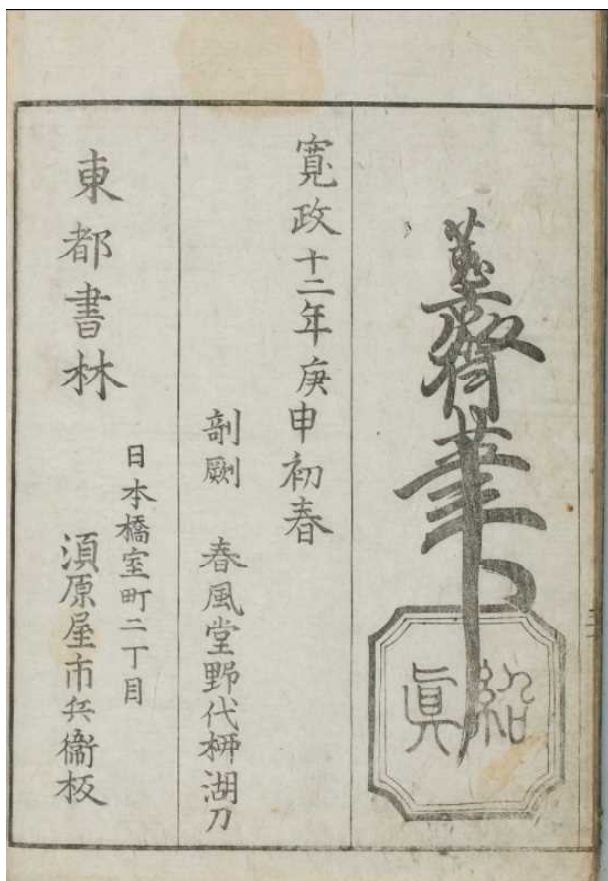 蕙齋筆
紹眞
寛政十二年庚申初春
剞劂 春風堂野代栁湖刀
東都書林
日本橋室町二丁目
須原屋市兵衞板